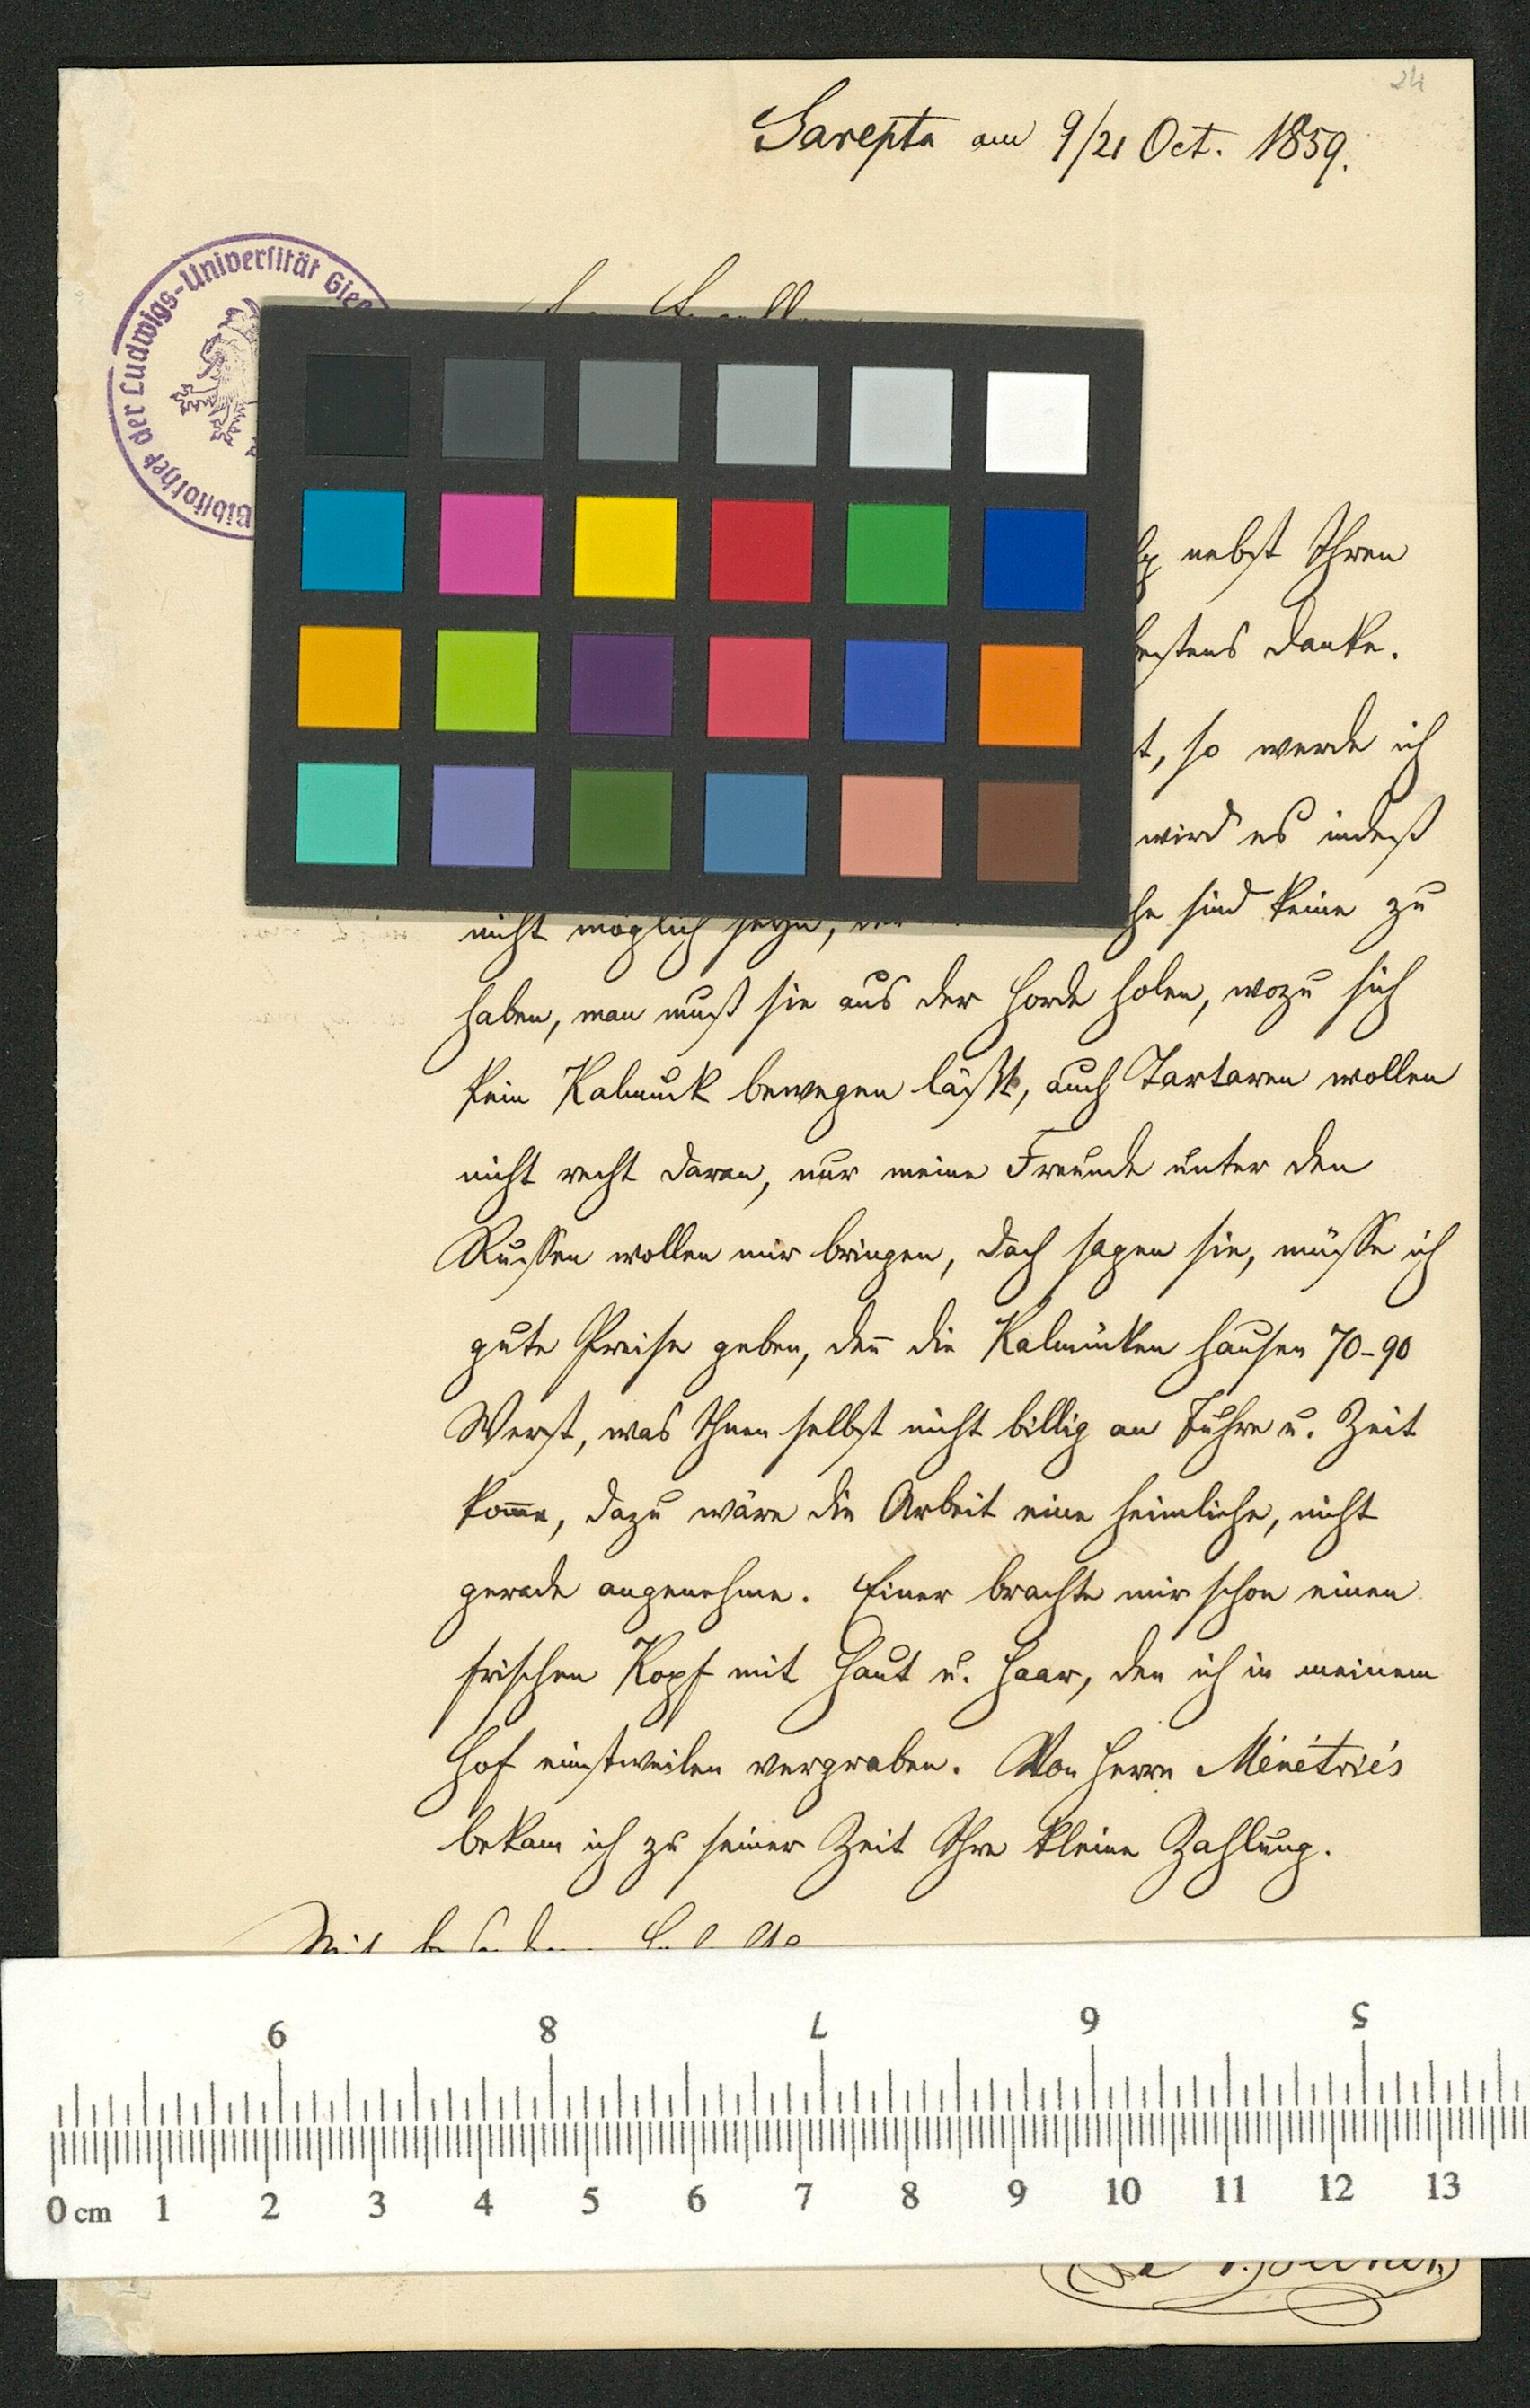 24
Sarepta am 9/21 Oct. 1859.
Bibliothek der Ludwigs-Universität Gie
nebst Ihren
bestens danke.
so werde ich
wird es indeß
nicht möglich seyn, sind keine zu
haben, man muß sie aus der Horde holen, wozu sich
kein Kalmuck bewegen läßt, auch Tartaren wollen
nicht recht daran, nur meine Freunde unter den
Russen wollen mir bringen, doch sagen sie, müsse ich
gute Preise geben, den̅ die Kalmücken hausen 70-90
Werst, was Ihnen selbst nicht billig an Fuhre u. Zeit
kom̅e, dazu wäre die Arbeit eine heimliche, nicht
gerade angenehme. Einer brachte mir schon einen
frischen Kopf mit Haut u. Haar, den ich in meinem
Hof einstweilen vergraben. Von Herrn Ménétriés
bekam ich zu seiner Zeit Ihre kleine Zahlung.
9 8 7 6 5
0 cm 1 2 3 4 5 6 7 8 9 10 11 12 13